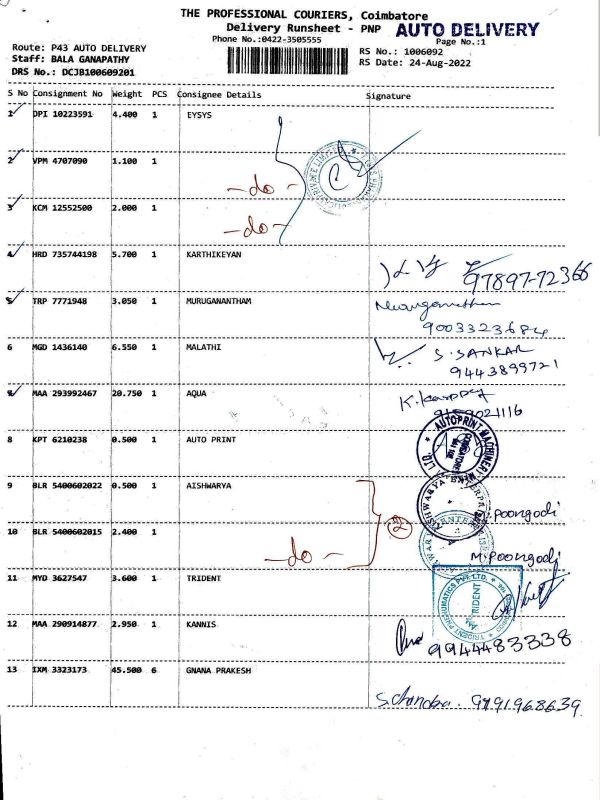 THE PROFESSIONAL COURIERS, Coimbatore
Delivery Runsheet - PNP AUTO DELIVERY
Phone No.:0422-3505555
Page No.:1
Route: P43 AUTO DELIVERY
RS No.: 1006092
Staff: BALA GANAPATHY
RS Date: 24-Aug-2022
DRS No.: DCJB100609201
S No Consignment No Weight PCS Consignee Details Signature
1 DPI 10223591 4.400 1 EYSYS
2 VPM 4707090 1.100 1
-do-
3 KCM 12552500 2.000 1
-do-
4 HRD 735744198 5.700 1 KARTHIKEYAN
97897-72366
5 TRP 7771948 3.050 1 MURUGANANTHAM
9003323684
6 MGD 1436140 6.550 1 MALATHI
S.SANKAR
9443899721
7 MAA 293992467 20.750 1 AQUA
8 KPT 6210238 0.500 1 AUTO PRINT
AUTOPRINT MACHINERY
9 BLR 5400602022 0.500 1 AISHWARYA
2
Poongodi
10 BLR 5400602015 2.400 1
-do-
M.Poongodi
11 MYD 3627547 3.600 1 TRIDENT
TRIDENT PNEUMATICS PVT. LTD.
TRIDENT
12 MAA 290914877 2.950 1 KANNIS
9944483338
13 IXM 3323173 45.500 6 GNANA PRAKESH
S.Chandra. 9791968639